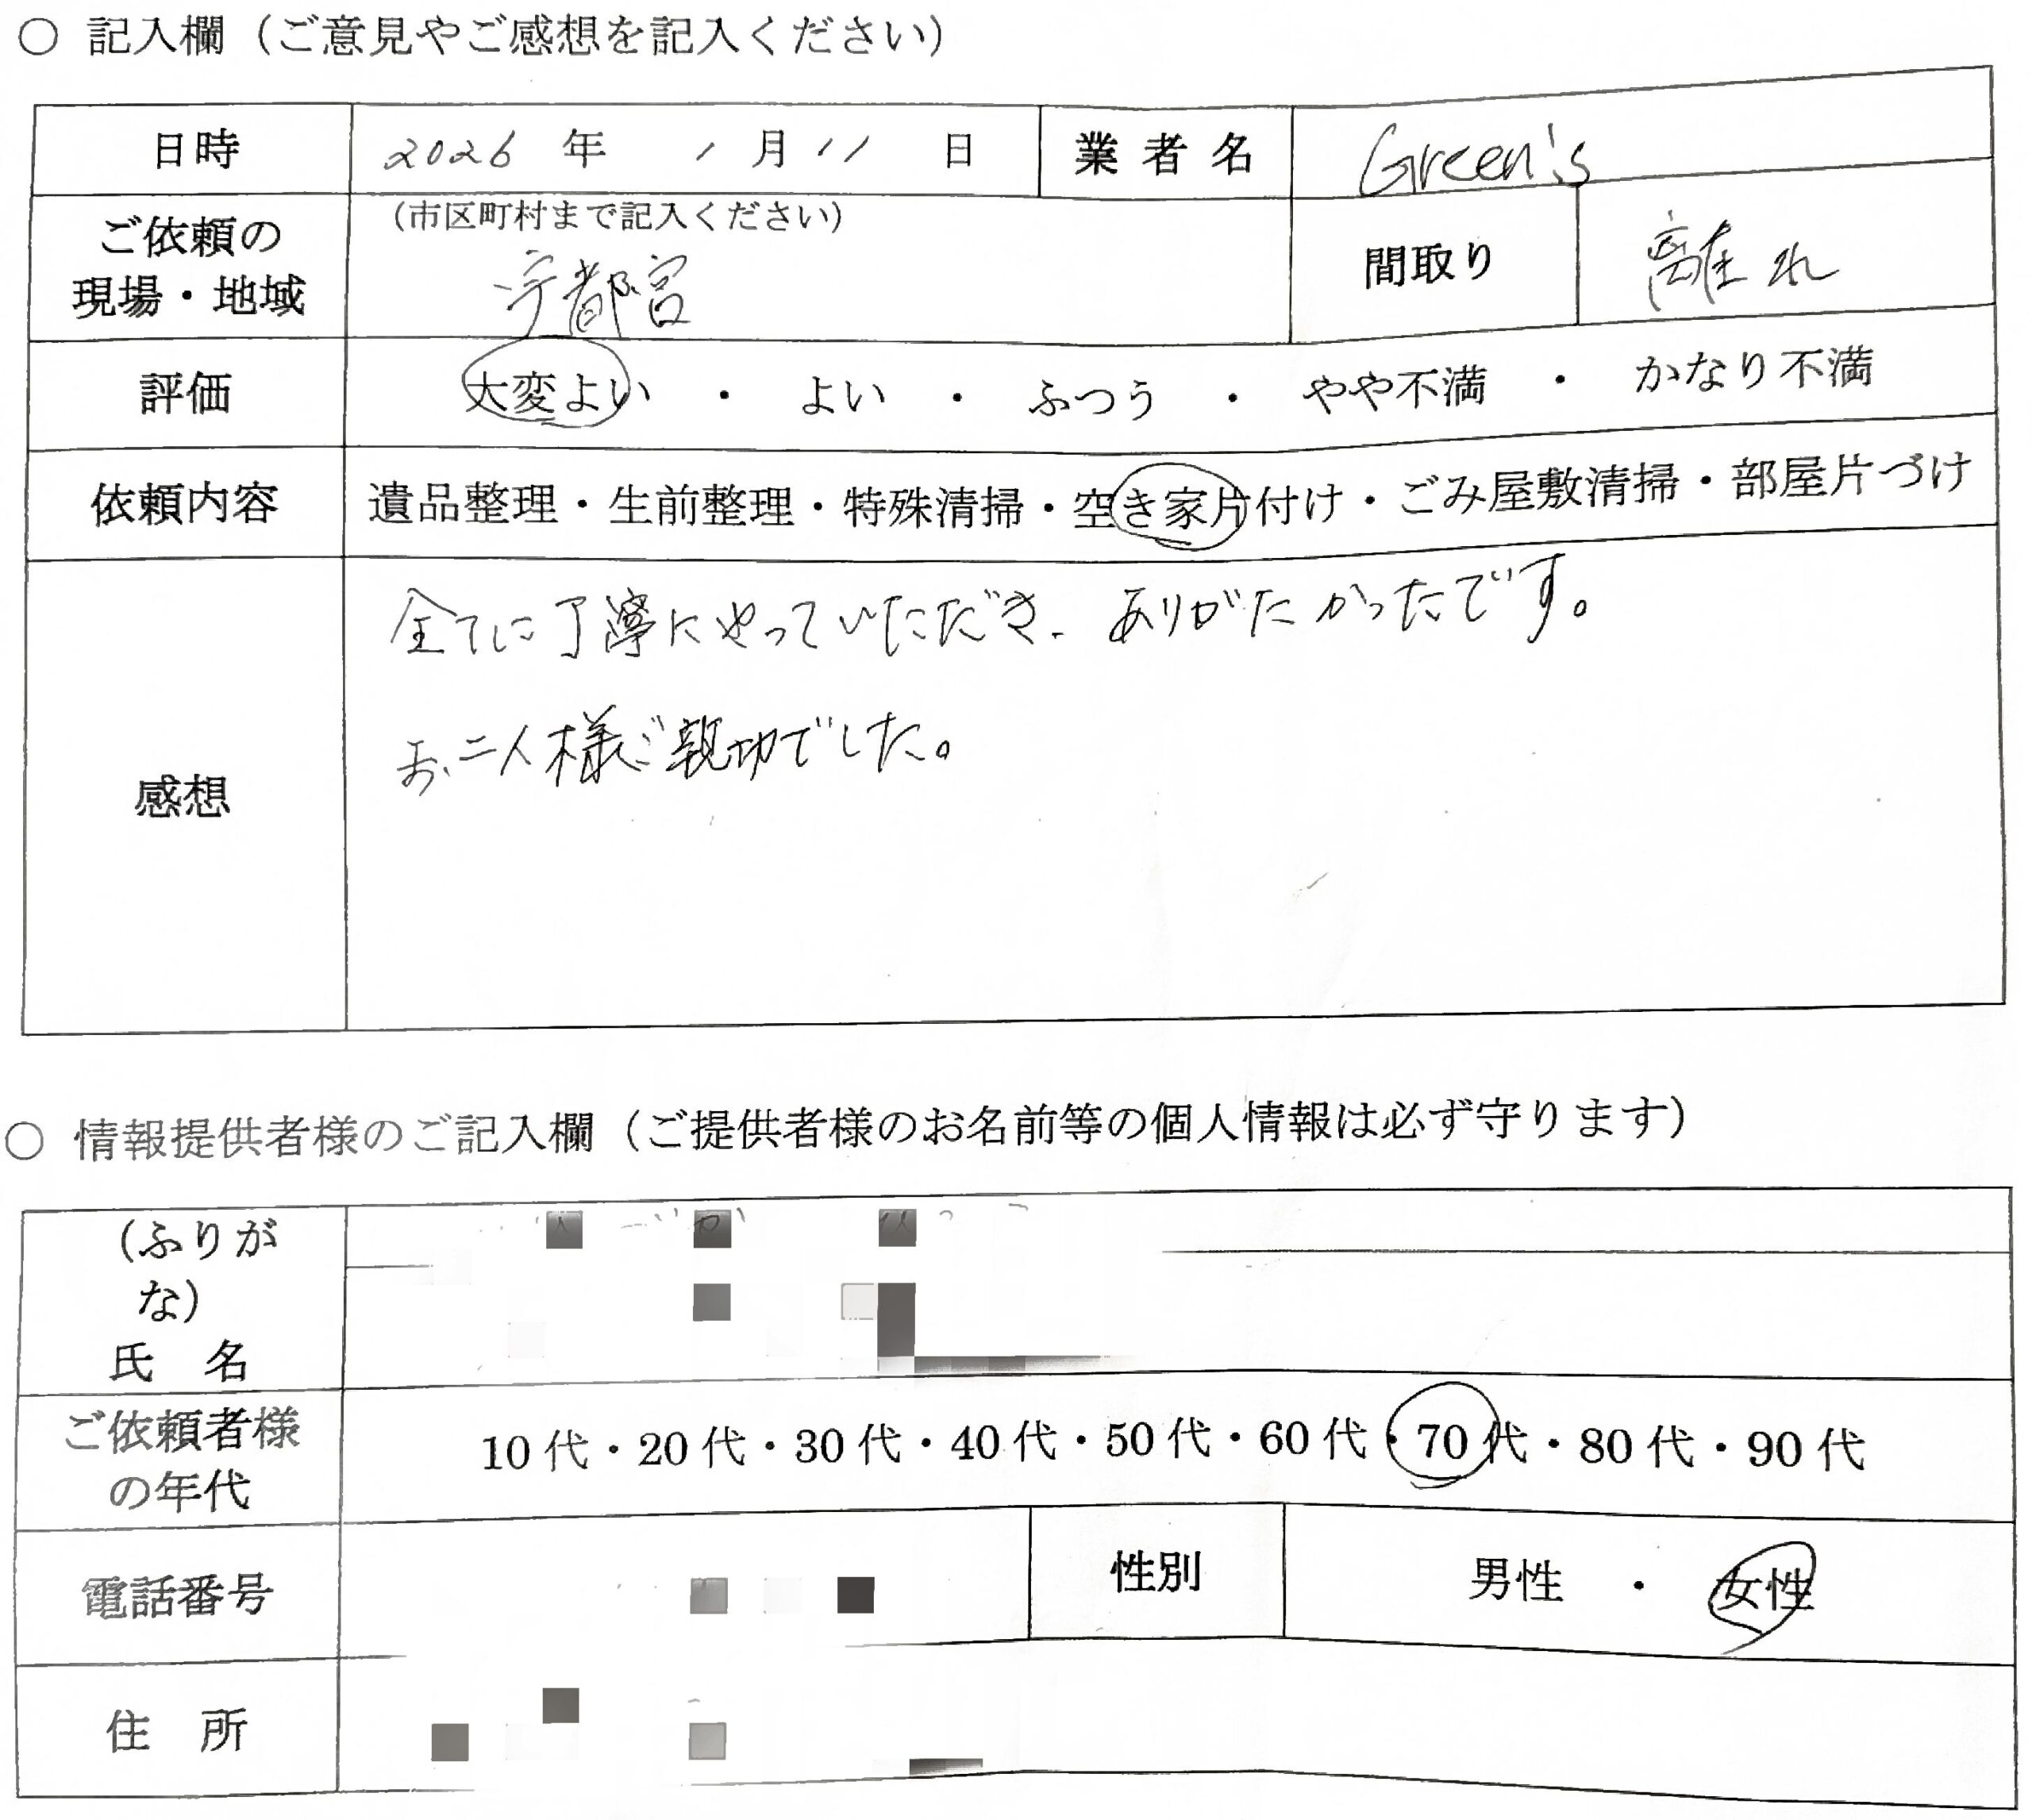 ○ 記入欄（ご意見やご感想を記入ください）
日時 2026 年 1 月 11 日 業者名 Green's
ご依頼の現場・地域 （市区町村まで記入ください） 宇都宮 間取り 離れ
評価 大変よい ・ よい ・ ふつう ・ やや不満 ・ かなり不満
依頼内容 遺品整理・生前整理・特殊清掃・空き家片付け・ごみ屋敷清掃・部屋片づけ
感想
全てに丁寧にやっていただき、ありがたかったです。
お二人様ご親切でした。
○ 情報提供者様のご記入欄（ご提供者様のお名前等の個人情報は必ず守ります）
（ふりがな）
氏 名
ご依頼者様の年代 10代・20代・30代・40代・50代・60代・70代・80代・90代
電話番号 性別 男性 ・ 女性
住 所